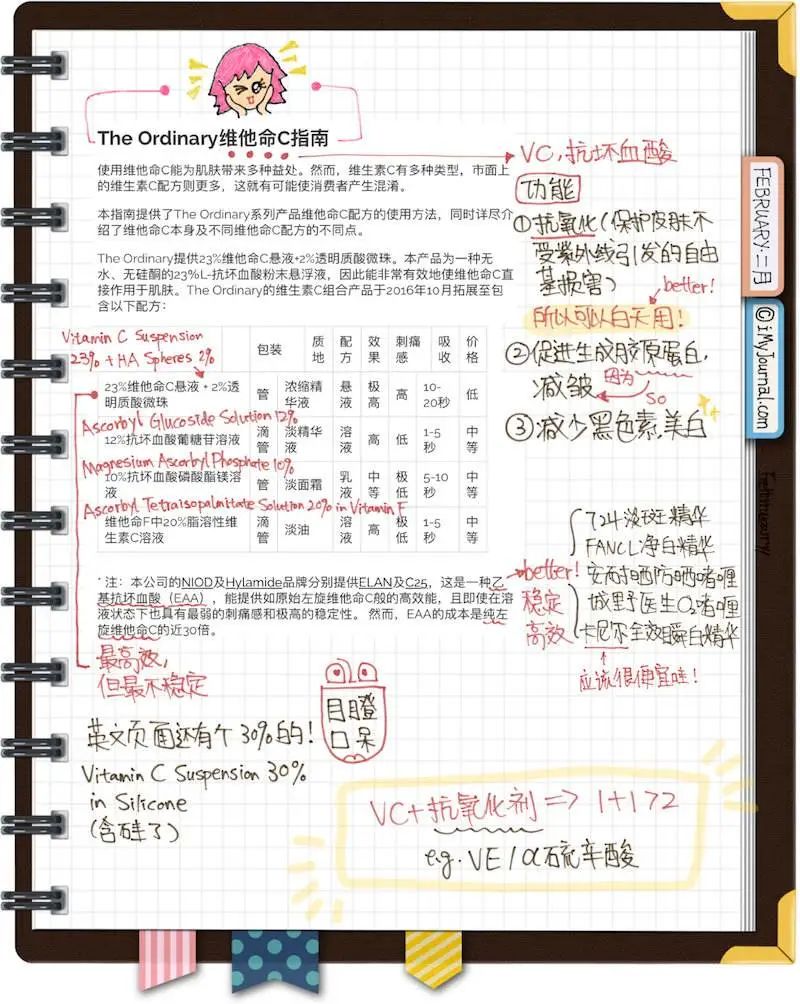 The Ordinary维他命C指南
使用维他命C能为肌肤带来多种益处。然而，维生素C有多种类型，市面上
的维生素C配方则更多，这就有可能使消费者产生混淆。
本指南提供了The Ordinary系列产品维他命C配方的使用方法，同时详尽介
绍了维他命C本身及不同维他命C配方的不同点。
The Ordinary提供23%维他命C悬液+2%透明质酸微珠。本产品为一种无
水、无硅酮的23%L-抗坏血酸粉末悬浮液，因此能非常有效地使维他命C直
接作用于肌肤。The Ordinary的维生素C组合产品于2016年10月拓展至包
含以下配方：
Vitamin C Suspension
23% + HA Spheres 2%
包装 质地 配方 效果 刺痛感 吸收 价格
23%维他命C悬液 + 2%透明质酸微珠 管 浓缩精华液 悬液 极高 高 10-20秒 低
Ascorbyl Glucoside Solution 12%
12%抗坏血酸葡糖苷溶液 滴管 淡精华液 溶液 高 低 1-5秒 中等
Magnesium Ascorbyl Phosphate 10%
10%抗坏血酸磷酸酯镁溶液 管 淡面霜 乳液 中等 极低 5-10秒 中等
Ascorbyl Tetraisopalmitate Solution 20% in Vitamin F
维他命F中20%脂溶性维生素C溶液 滴管 淡油 溶液 高 极低 1-5秒 中等
* 注：本公司的NIOD及Hylamide品牌分别提供ELAN及C25，这是一种乙
基抗坏血酸（EAA），能提供如原始左旋维他命C般的高效能，且即使在溶
液状态下也具有最弱的刺痛感和极高的稳定性。 然而，EAA的成本是纯左
旋维他命C的近30倍。
最高效，
但最不稳定
英文页面还有个30%的！
Vitamin C Suspension 30%
in Silicone
(含硅了)
目瞪
口呆
VC，抗坏血酸
功能
①抗氧化(保护皮肤不
受紫外线引发的自由
基损害)
better!
所以可以白天用！
②促进生成胶原蛋白，
减皱
因为
so
③减少黑色素，美白
724淡斑精华
FANCL净白精华
安耐晒防晒啫喱
城野医生O₂啫喱
卡尼尔全效瞬白精华
better!
稳定
高效
应该很便宜哇！
VC+抗氧化剂=>1+1>2
e.g. VE/α硫辛酸
FEBRUARY·二月
© iMyJournal.com